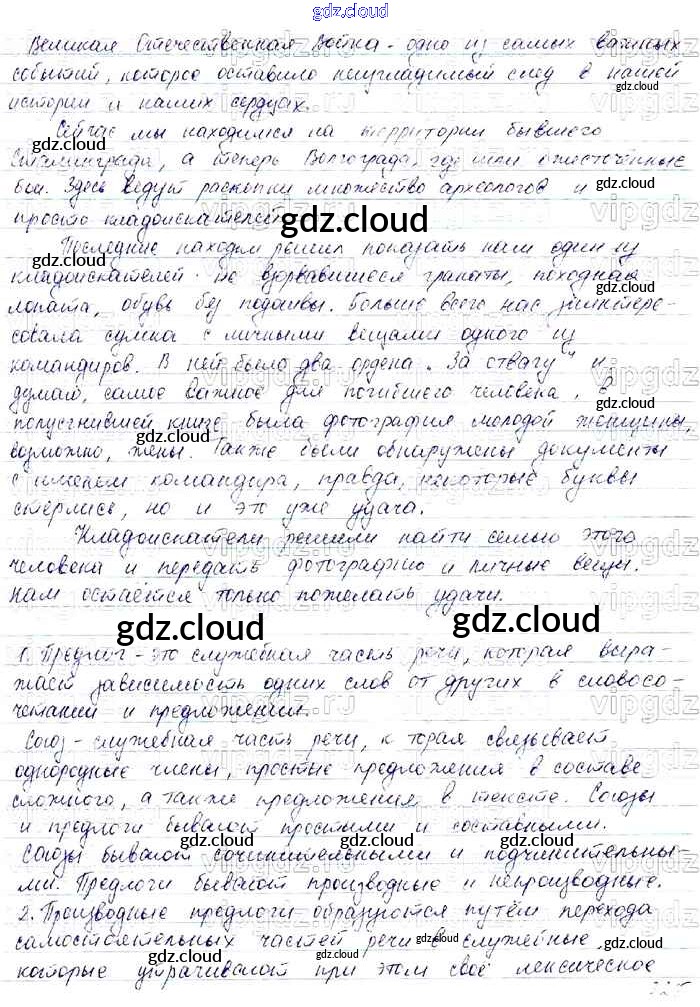 gdz.cloud
Великая Отечественная Война - одно из самых важных
событий, которое оставило неизгладимый след в нашей
истории и наших сердцах.
Сейчас мы находимся на территории бывшего
Сталинграда, а теперь Волгограда, где шли ожесточённые
бои. Здесь ведут раскопки множество археологов и
просто кладоискателей.
gdz.cloud
Последние находки решил показать нам один из
кладоискателей: не взорвавшиеся гранаты, походная
лопата, обувь без подошвы. Больше всего нас заинтере-
совала сумка с личными вещами одного из
командиров. В ней было два ордена "За отвагу" и
думаю, самое важное для погибшего человека, в
полусгнившей книге была фотография молодой женщины,
возможно, жены. Также были обнаружены документы
с именем командира, правда, некоторые буквы
стёрлись, но и это уже удача.
Кладоискатели решили найти семью этого
человека и передать фотографию и личные вещи.
Нам остаётся только пожелать удачи.
gdz.cloud gdz.cloud
1. Предлог - это служебная часть речи, которая выра-
жает зависимость одних слов от других в словосо-
четании и предложении.
Союз - служебная часть речи, которая связывает
однородные члены, простые предложения в составе
сложного, а также предложения в тексте. Союзы
и предлоги бывают простыми и составными.
Союзы бывают сочинительными и подчинительны-
ми. Предлоги бывают производные и непроизводные.
2. Производные предлоги образуются путём перехода
самостоятельных частей речи в служебные,
которые утрачивают при этом своё лексическое